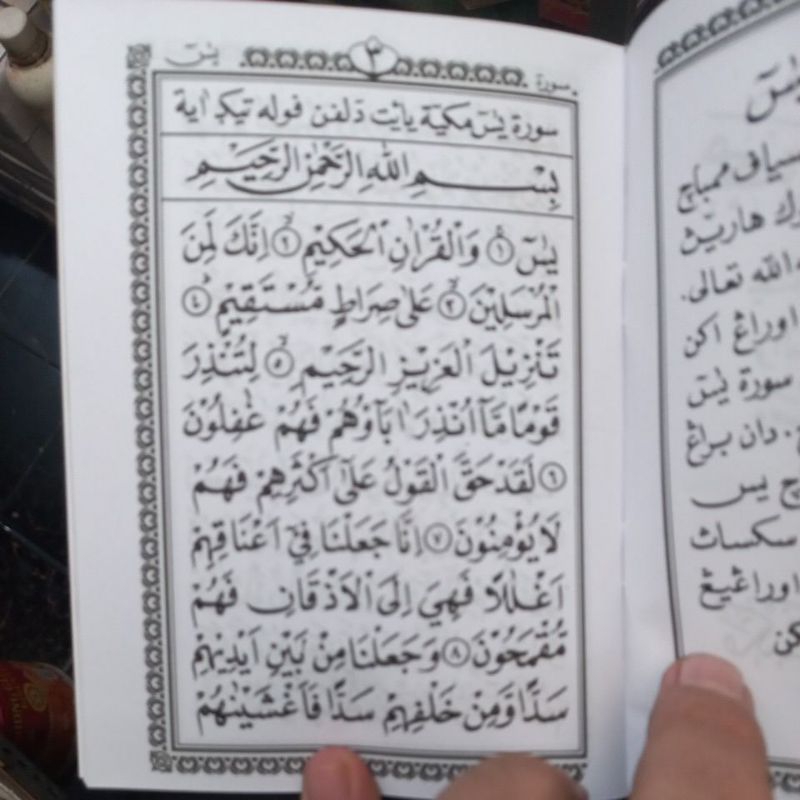 سورة
٣
يٰسٓ
سورة يٰسٓ مكية يائيت دلفن فوله تيݢ اية
بِسْمِ اللّٰهِ الرَّحْمٰنِ الرَّحِيْمِ
يٰسٓ ﴿١﴾ وَالْقُرْاٰنِ الْحَكِيْمِ ﴿٢﴾ اِنَّكَ لَمِنَ
الْمُرْسَلِيْنَ ﴿٣﴾ عَلٰى صِرَاطٍ مُّسْتَقِيْمٍ ﴿٤﴾
تَنْزِيْلَ الْعَزِيْزِ الرَّحِيْمِ ﴿٥﴾ لِتُنْذِرَ
قَوْمًا مَّآ اُنْذِرَ اٰبَآؤُهُمْ فَهُمْ غٰفِلُوْنَ
﴿٦﴾ لَقَدْ حَقَّ الْقَوْلُ عَلٰٓى اَكْثَرِهِمْ فَهُمْ
لَا يُؤْمِنُوْنَ ﴿٧﴾ اِنَّا جَعَلْنَا فِيْٓ اَعْنَاقِهِمْ
اَغْلٰلًا فَهِيَ اِلَى الْاَذْقَانِ فَهُمْ
مُّقْمَحُوْنَ ﴿٨﴾ وَجَعَلْنَا مِنْ بَيْنِ اَيْدِيْهِمْ
سَدًّا وَّمِنْ خَلْفِهِمْ سَدًّا فَاَغْشَيْنٰهُمْ
يٰسٓ
ممباچ
هاريڽ
الله تعالى.
اوراڠ اكن
سورة يٰسٓ
دان براڠ
يس
سكساڽ
اوراڠيڠ